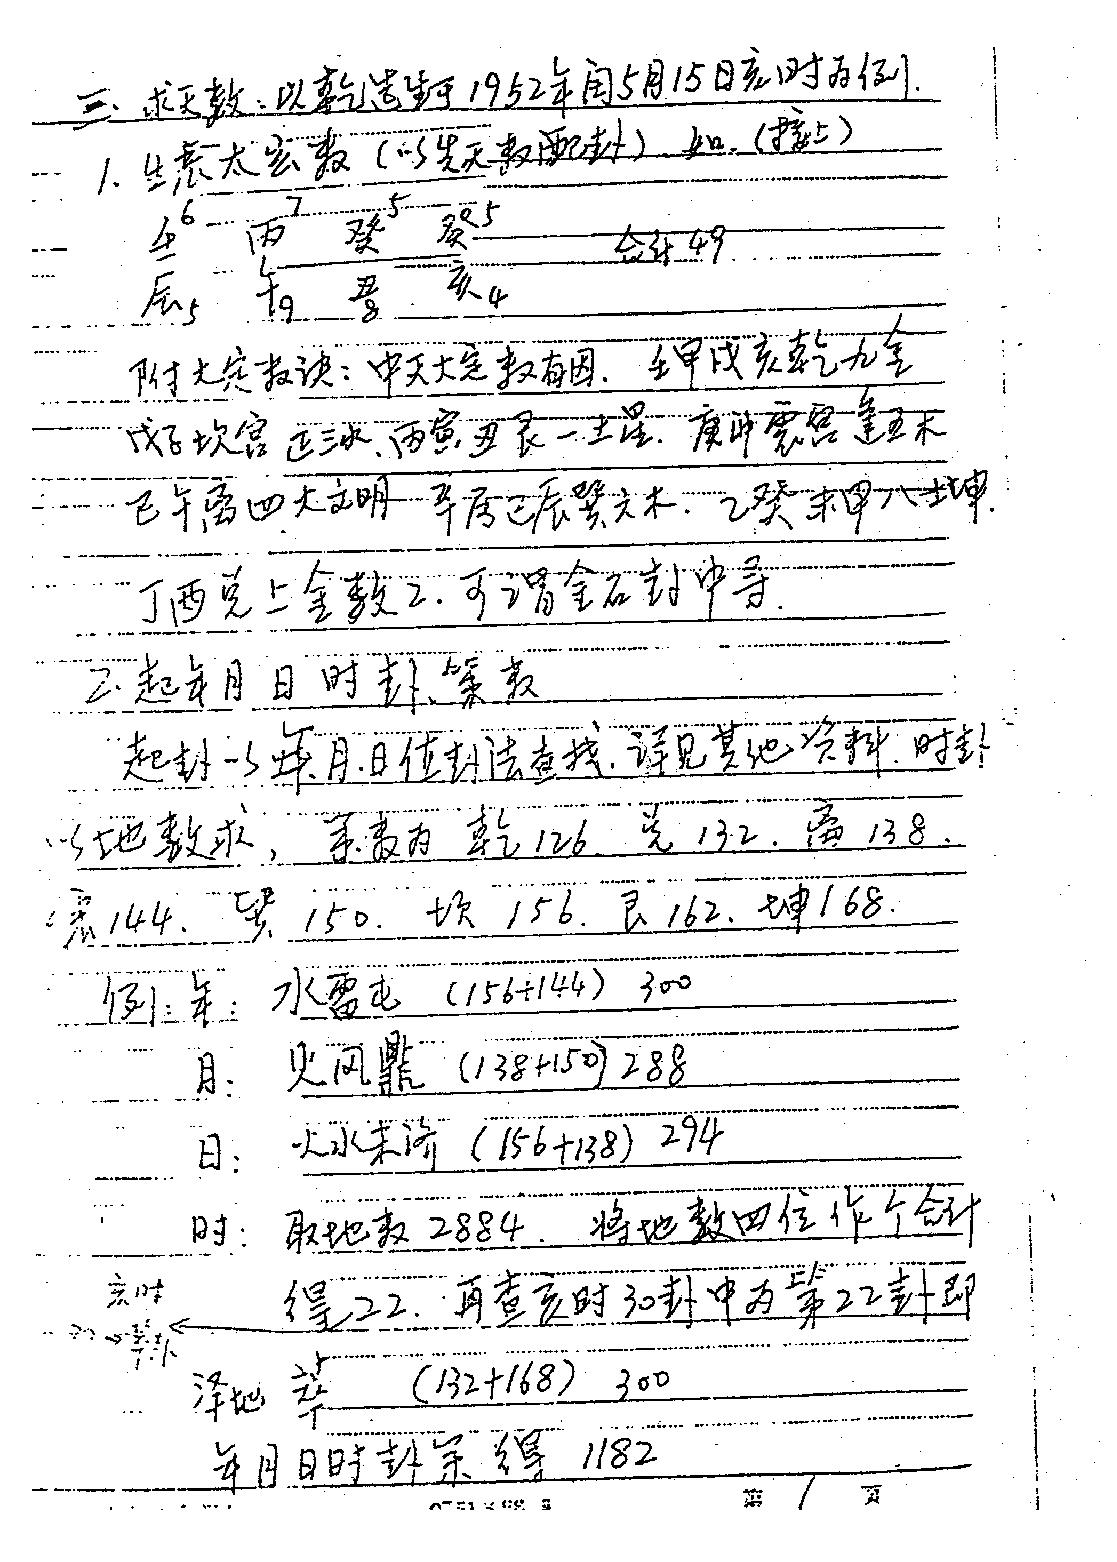 三、求天数：以乾造生于1952年闰5月15日亥时为例.
1. 生辰太玄数（以先天数配卦）如.（接上）
壬6 丙7 癸5 癸5 合计49
辰5 午9 丑8 亥4
附大定数诀：中天大定数有因. 壬甲戌亥乾九金
戊子坎宫正三水、丙寅丑艮一土星. 庚卯震宫逢五木
己午离四大文明 辛居巳辰巽六木. 乙癸未申八土坤.
丁酉兑上金数2. 可谓金石卦中寻.
2. 起年月日时卦、策数
起卦以年.月.日值卦法查找.详见其他资料.时卦
以地数求，策数为 乾126. 兑132. 离138.
震144. 巽150. 坎156. 艮162. 坤168.
例：年：水雷屯 (156+144) 300
月：火风鼎 (138+150) 288
日：火水未济 (156+138) 294
时：取地数2884. 将地数四位作个合计
亥时
得22. 再查亥时30卦中为第22卦即
泽地萃 (132+168) 300
年月日时卦策得 1182
第 1 页